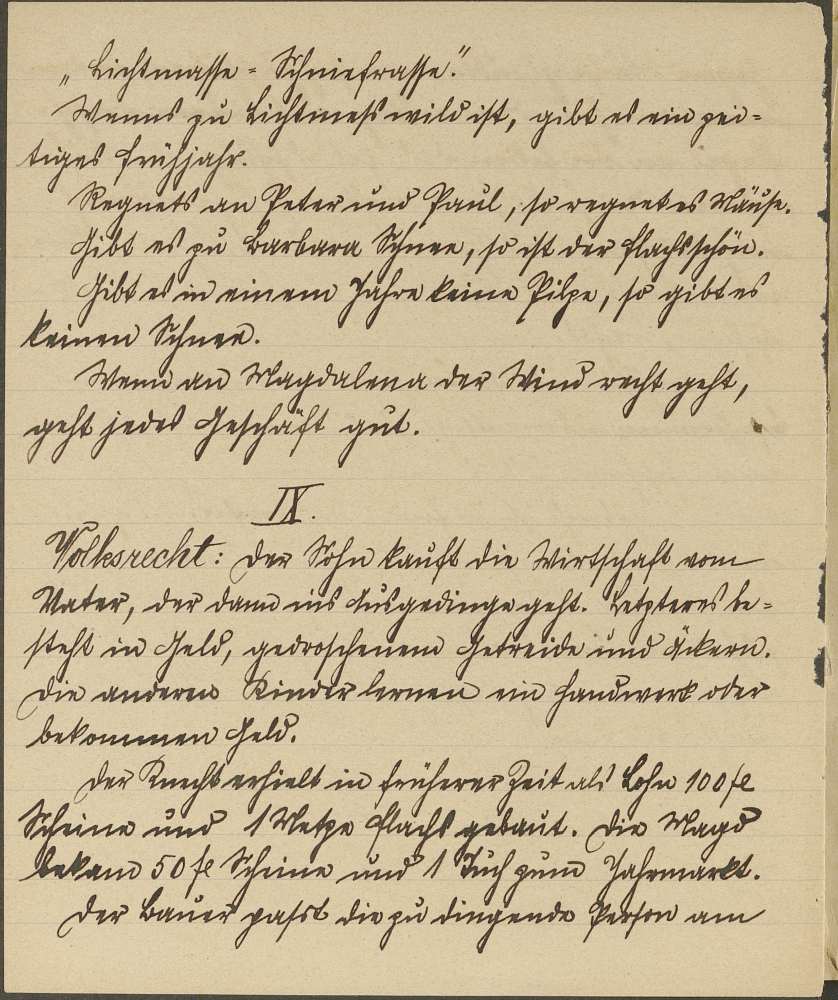 „Lichtmasse = Schniefrasse."
Wenns zu Lichtmess wild ist, gibt es ein zei=
tiges Frühjahr.
Regnets an Peter und Paul, so regnet es Mäuse.
Gibt es zu Barbara Schnee, so ist der Flachs schön.
Gibt es in einem Jahre keine Pilze, so gibt es
keinen Schnee.
Wenn an Magdalena der Wind recht geht,
geht jedes Geschäft gut.
IX.
Volksrecht: Der Sohn kauft die Wirtschaft vom
Vater, der dann ins Ausgedinge geht. Letzteres be=
steht in Geld, gedroschenem Getreide und Äckern.
Die anderen Kinder lernen ein Handwerk oder
bekommen Geld.
Der Knecht erhielt in früherer Zeit als Lohn 100 fl
Scheine und 1 Metze Flachs gebaut. Die Magd
bekam 50 fl Scheine und 1 Tuch zum Jahrmarkt.
Der Bauer passt die zu dingende Person am